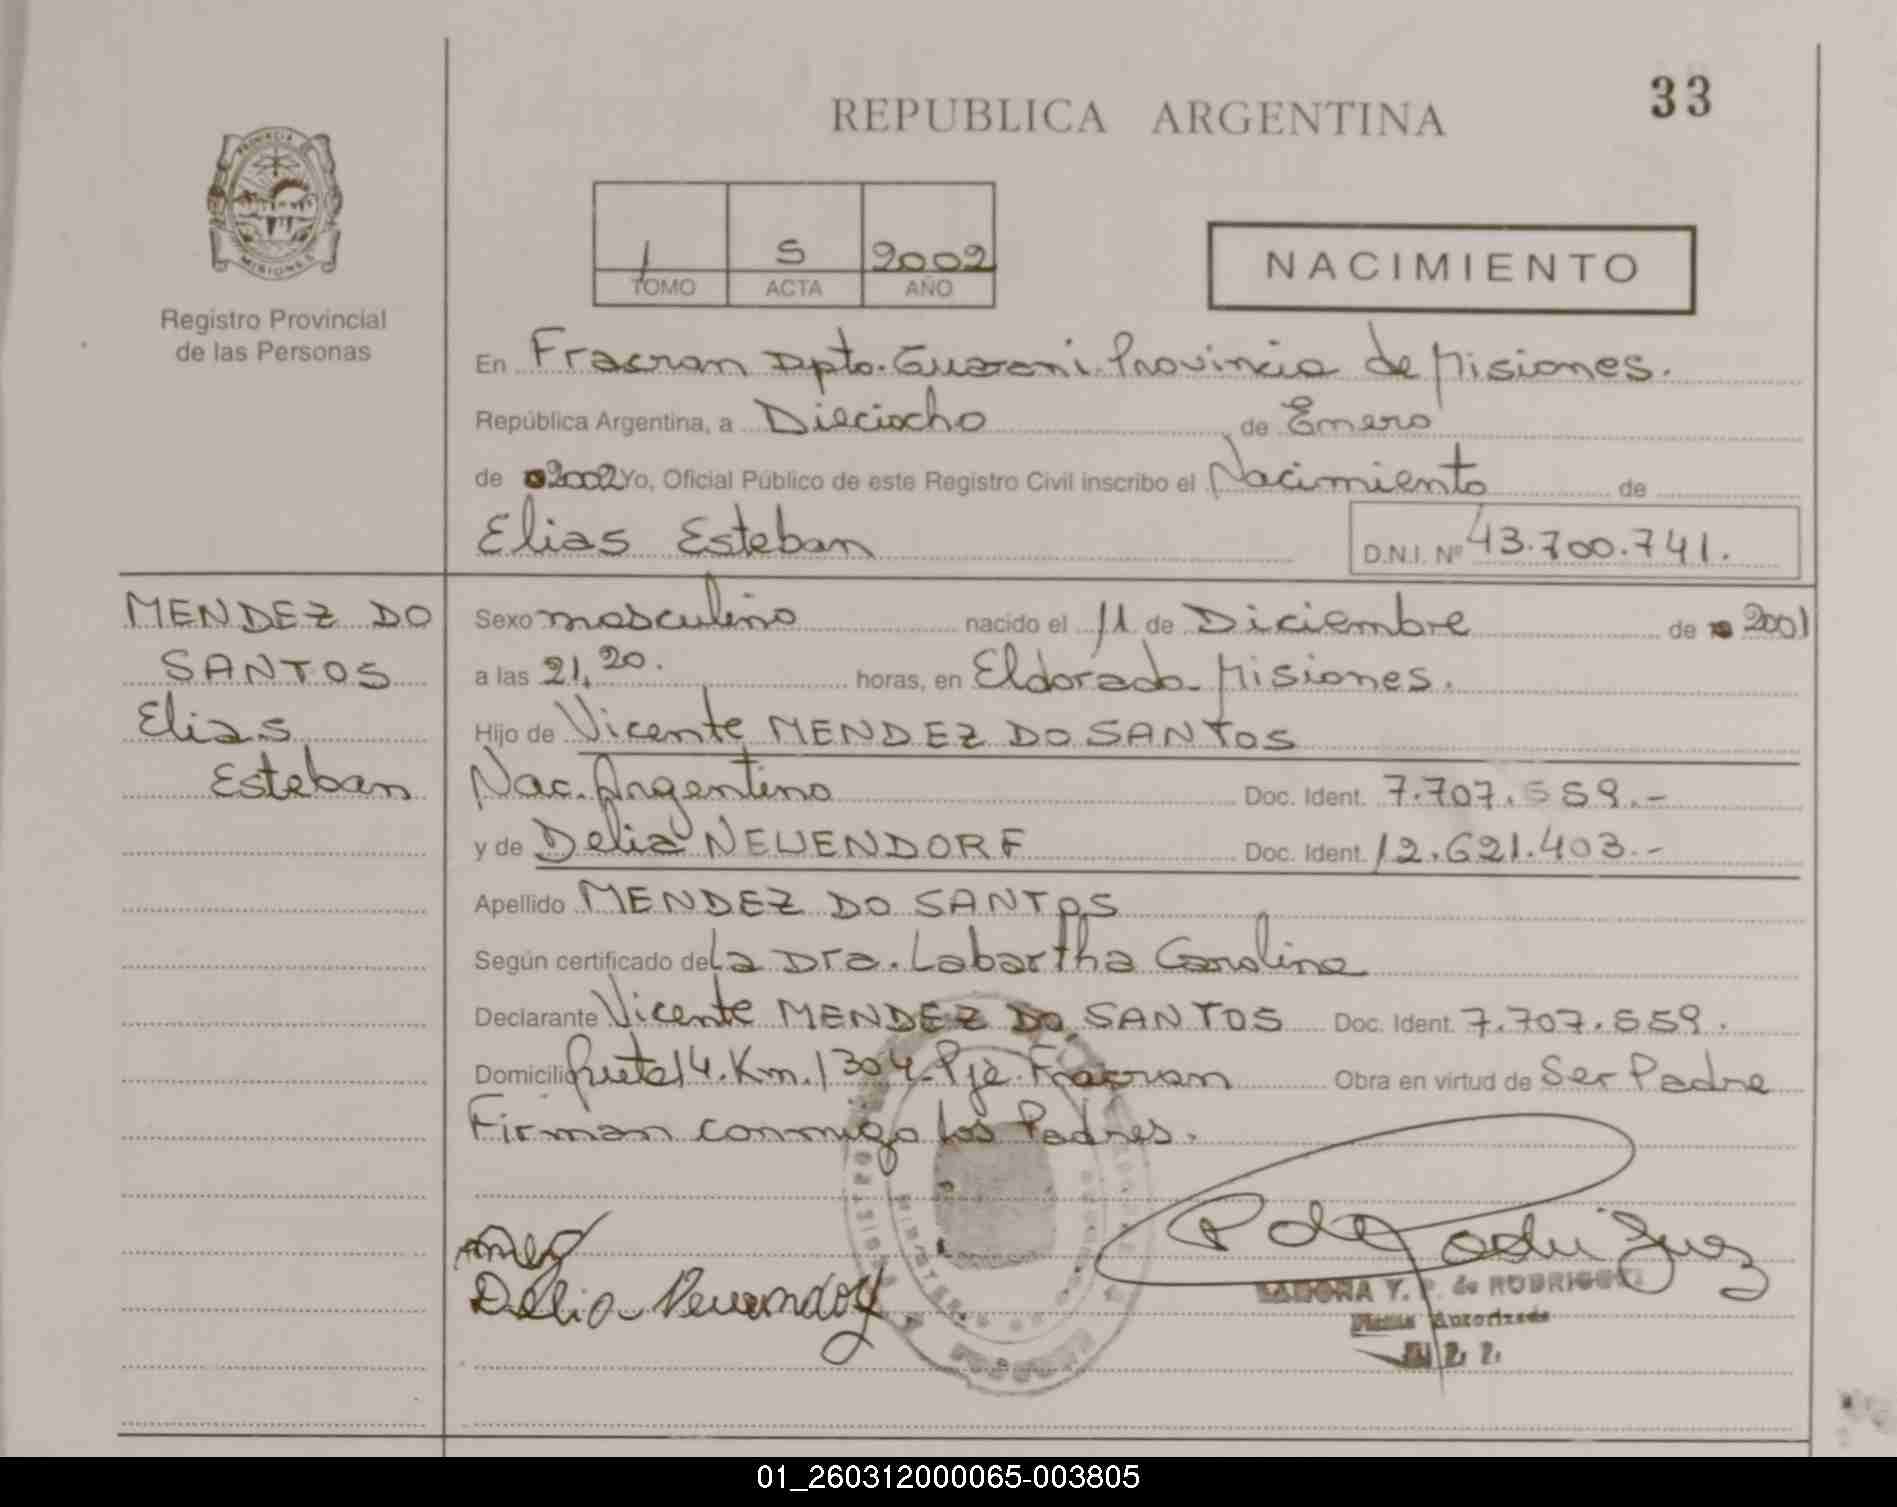 33
REPUBLICA ARGENTINA
PROVINCIA DE
MISIONES
Registro Provincial
de las Personas
1 5 2002
TOMO ACTA AÑO
NACIMIENTO
En Fracran Dpto. Guarani Provincia de Misiones.
República Argentina, a Dieciocho de Enero
de 2002 Yo, Oficial Público de este Registro Civil inscribo el Nacimiento de
Elias Esteban D.N.I. Nº 43.700.741.
MENDEZ DO
SANTOS
Elias
Esteban
Sexo masculino nacido el 11 de Diciembre de 2001
a las 21,20. horas, en Eldorado Misiones.
Hijo de Vicente MENDEZ DO SANTOS
Nac. Argentino Doc. Ident. 7.707.559.-
y de Delia NEUENDORF Doc. Ident. 12.621.403.-
Apellido MENDEZ DO SANTOS
Según certificado de La Dra. Labartha Carolina
Declarante Vicente MENDEZ DO SANTOS Doc. Ident. 7.707.559.
Domicilio Ruta 14. Km. 1304. Pje. Fracran Obra en virtud de Ser Padre
Firman conmigo los Padres.
Delia Neuendorf
Y. P. de RODRIGUEZ
Firma Autorizada
01_260312000065-003805